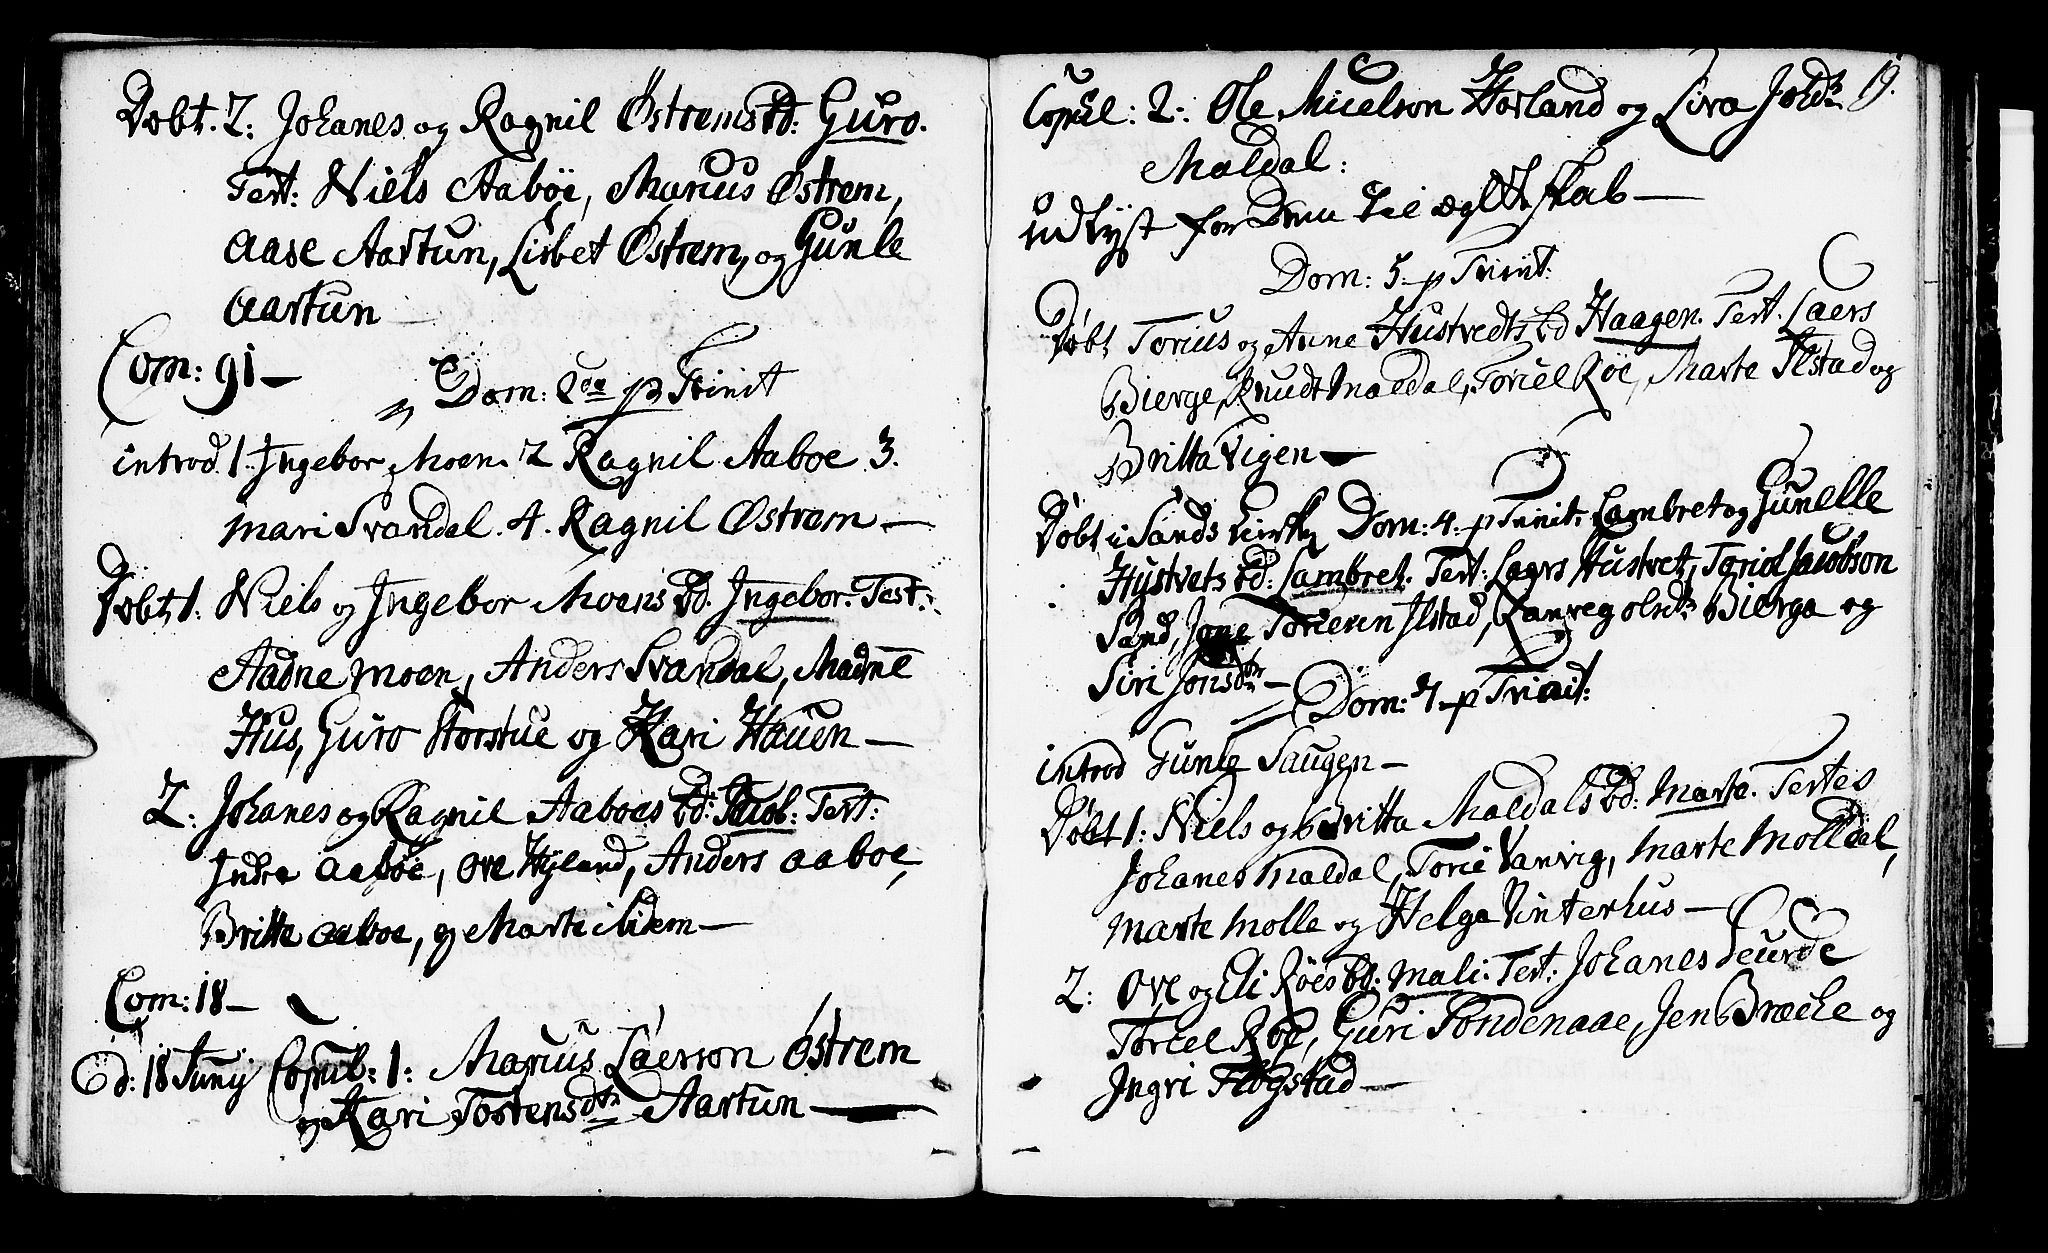 Døbt. 2: Johanes og Ragnil Østrems bd: Guro.
Test: Niels Aabøe, Marius Østrem,
Aase Aartun, Lisbet Østrem, og Gunle
Aartun
Com: 91 —
Dom: 2da p Trinit
introd 1. Ingebor Moen. 2 Ragnil Aaboe 3.
Mari Svandal. 4. Ragnil Østrem —
Døbt 1: Niels og Ingebor Moens bd. Ingebor. Test:
Aadne Moen, Anders Svandal, Madne
Hus, Guro Storstue og Kari Hauen —
2: Johanes og Ragnil Aaboes bd: Jacob: Test:
Indre Aabøe, Ove Hyland, Anders Aaboe,
Britte Aaboe, og Marte ibidem —
Com: 18 —
d: 18 Juny Copul: 1: Marius Laerson Østrem
og Kari Tostensdtr Aartun —
19.
Copul: 2: Ole Horland og Sira
Maldal:
udlyst for Dem til ægteskab —
Dom: 5 p Trinit:
Døbt Torius og Anne Hustvedts bd Haagen. Test. Laers
Bierge, Knudt Maldal, Torcel Röe, Marte Ilstad og
Britta Vigen —
Døbt i Sands kirke Dom: 4. p Trinit: Lambret og Gunelle
Hustvets bd: Lambret. Test: Laers Hustvet, Toriel Jacobson
Sand, Torieren Ilstad, Ranveg olsdtr Bierga og
Siri Jonsdtr —
Dom: 7 p Trinit:
introd Gunle Saugen —
Døbt 1: Niels og Britta Maldals bd: Marta. Testes
Johanes Maldal, Torie Vanvig, Marte Molldal,
Marte Molle og Helga Vinterhus —
2: Ove og Eli Röes bd: Mali: Test: Johanes
Torcel Röe, Guri Tondenaae, Jen Bræke og
Ingri Flogstad —